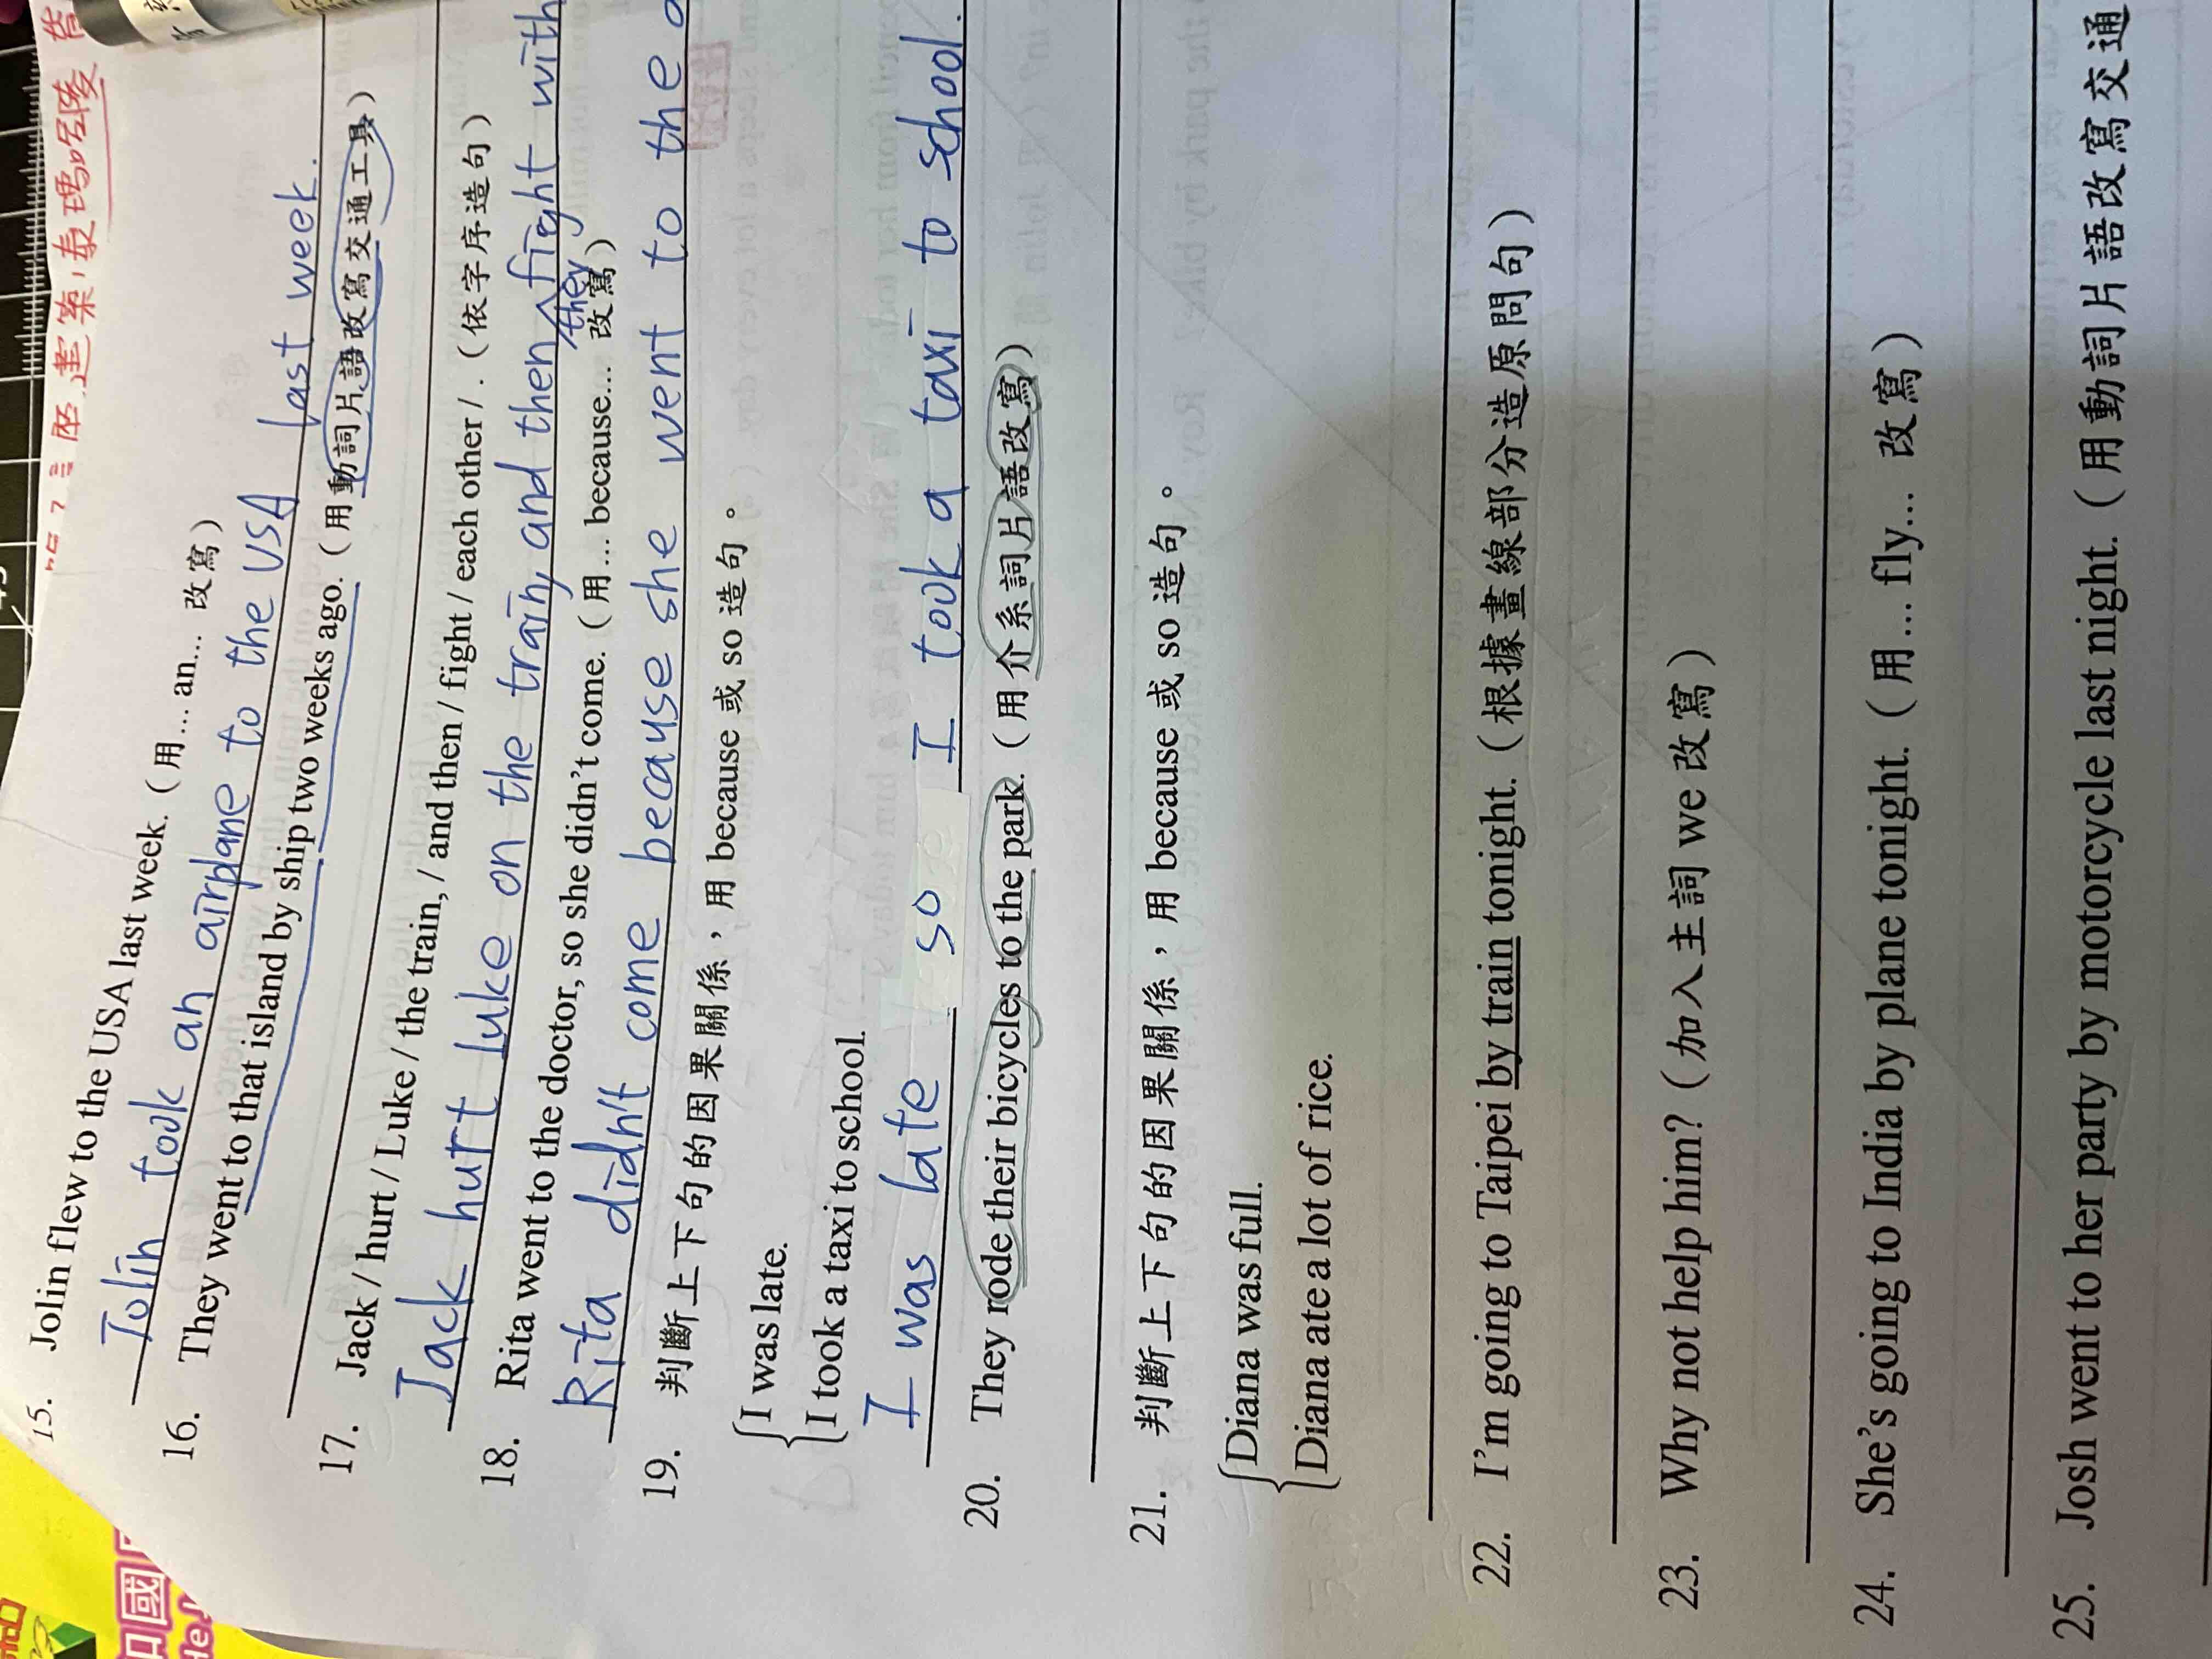 建案
15. Jolin flew to the USA last week.（用… an… 改寫）
Jolin took an airplane to the USA last week.
16. They went to that island by ship two weeks ago.（用動詞片語改寫交通工具）
17. Jack / hurt / Luke / the train, / and then / fight / each other / .（依字序造句）
Jack hurt Luke on the train, and then they fight with
18. Rita went to the doctor, so she didn't come.（用… because… 改寫）
Rita didn't come because she went to the
19. 判斷上下句的因果關係，用 because 或 so 造句。
I was late.
I took a taxi to school.
I was late so I took a taxi to school.
20. They rode their bicycles to the park.（用介系詞片語改寫）
21. 判斷上下句的因果關係，用 because 或 so 造句。
Diana was full.
Diana ate a lot of rice.
22. I'm going to Taipei by train tonight.（根據畫線部分造原問句）
23. Why not help him?（加入主詞 we 改寫）
24. She's going to India by plane tonight.（用… fly… 改寫）
25. Josh went to her party by motorcycle last night.（用動詞片語改寫交通